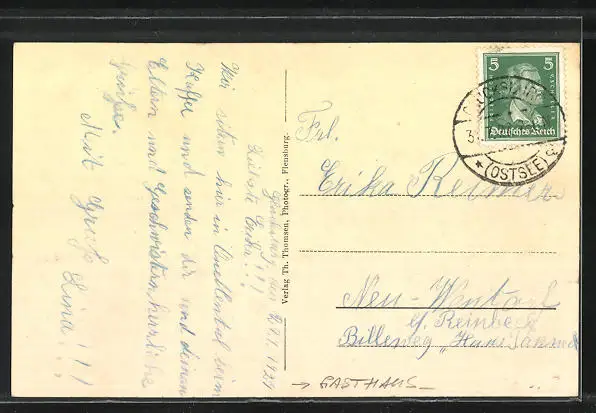 Glücksburg, den 27.1.1929
Liebste Erika!!!
Wir sitzen hier in Quellental beim
Kaffee und senden dir und deinen
Eltern und Geschwistern, herzliche
Grüße.
Mit Gruß
Lina!!!
Verlag Th. Thomsen, Photogr., Flensburg.
5 5
Deutsches Reich
(OSTSEE)
Frl.
Erika Reimer
Neu-Wentorf
b/ Reinbek
Billeweg „Haus
→ GASTHAUS